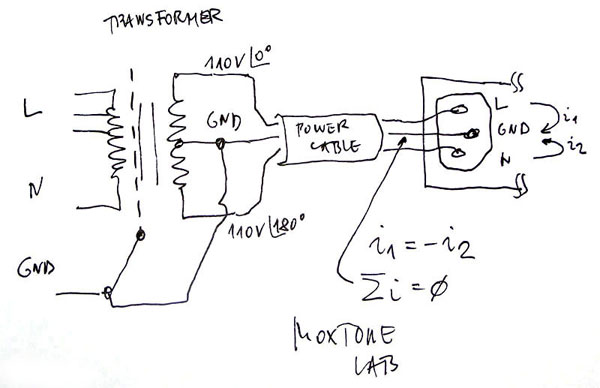 TRANSFORMER
110V∠0°
L
GND
POWER
CABLE
L
GND
N
i1
i2
N
110V∠180°
GND
i1 = -i2
Σi = ∅
MOXTONE
LAB